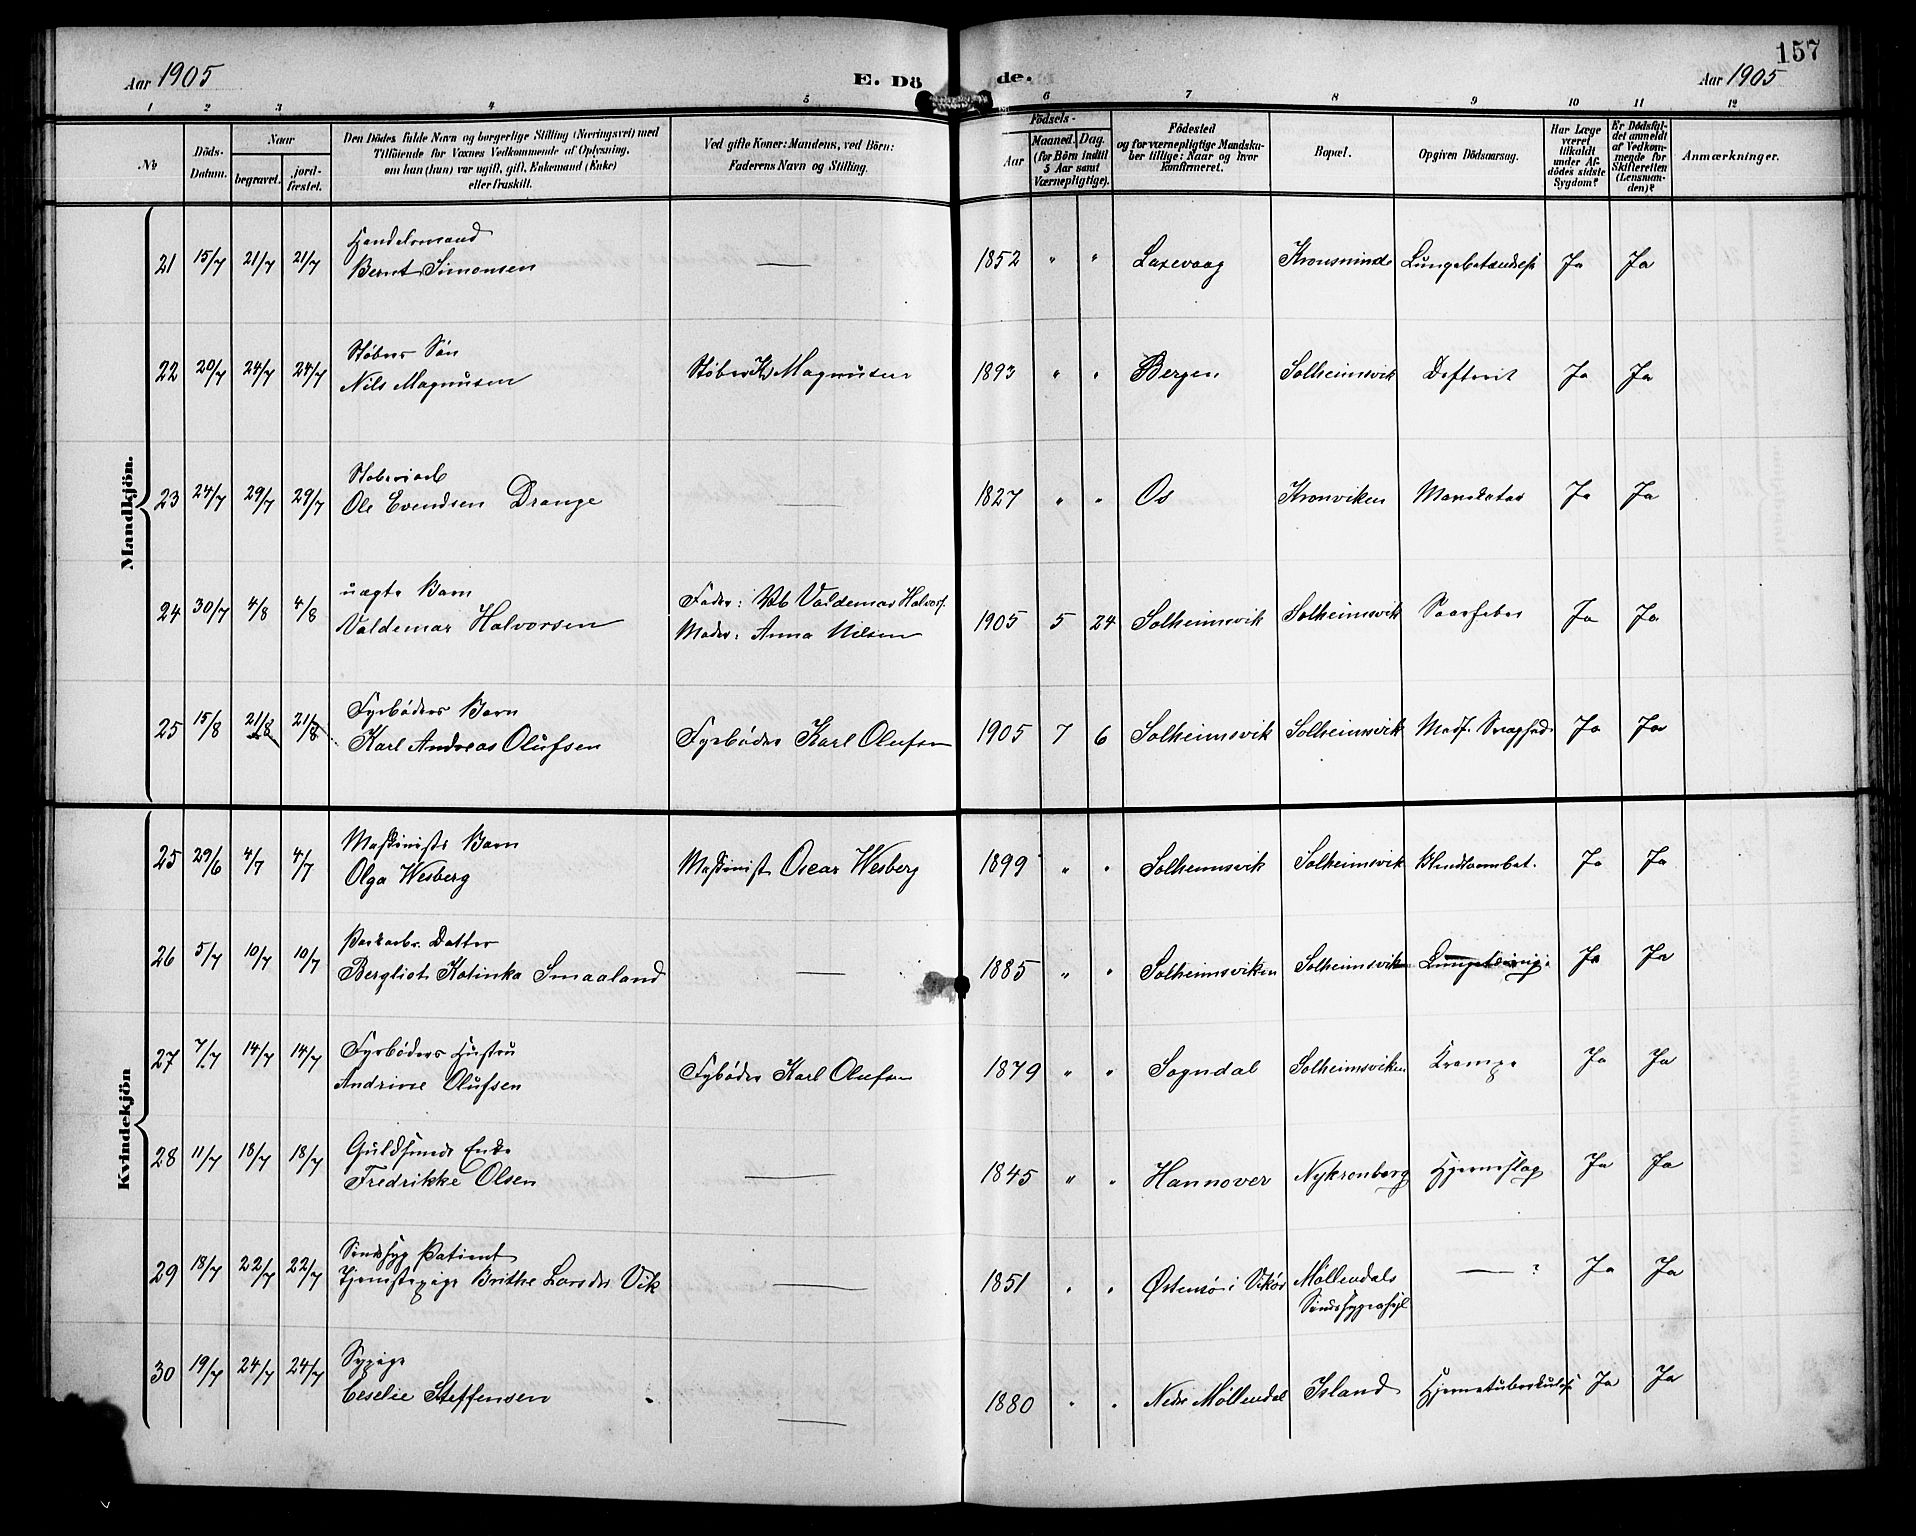 157
Aar 1905
E. Döde.
Aar 1905
1 2 3 4 5 6 7 8 9 10 11 12
No
Döds-Datum.
Naar
begravet.
jordfæstet.
Den Dödes fulde Navn og borgerlige Stilling (Næringsvei) med
Tilföiende for Voxnes Vedkommende af Oplysning,
om han (hun) var ugift, gift, Enkemand (Enke)
eller fraskilt.
Ved gifte Koner: Mandens, ved Börn:
Faderens Navn og Stilling.
Födsels-
Aar
Maaned. Dag.
(for Börn indtil
5 Aar samt
Værnepligtige).
Födested
og for værnepligtige Mandskaber tillige: Naar og hvor
konfirmeret.
Bopæl.
Opgiven Dödsaarsag.
Har Læge
været
tilkaldt
under Afdödes sidste
Sygdom?
Er Dödsfaldet anmeldt
af Vedkommende for
Skifteretten
(Lensmanden)?
Anmærkninger.
Mandkjön.
Handelsmand
21 15/7 21/7 21/7 Bernt Simonsen — 1852 " " Laxevaag Kronsminde Lungebetændelse Ja Ja
Støbers Søn
22 20/7 24/7 24/7 Nils Magnusen Støber Magnusen 1893 " " Bergen Solheimsvik Difterit Ja Ja
23 24/7 29/7 29/7 Ole Evendsen Drange — 1827 " " Os Kronviken Ja Ja
uægte Barn Fader: Valdemar Halvors.
24 30/7 4/8 4/8 Valdemar Halvorsen Moder: Anna Nilsen 1905 5 24 Solheimsvik Solheimsvik Ja Ja
Fyrbøders Barn
25 15/8 21/8 21/8 Karl Andreas Olufsen Fyrbøder Karl Olufsen 1905 7 6 Solheimsvik Solheimsvik Medf. Svaghed Ja Ja
Kvindekjön
Maskinists Barn
25 29/6 4/7 4/7 Olga Wesberg Maskinist Oscar Wesberg 1899 " " Solheimsvik Solheimsvik Blindtarmbet. Ja Ja
Datter
26 5/7 10/7 10/7 Bergliot Katinka Smaaland — 1885 " " Solheimsviken Solheimsvik Ja Ja
Fyrbøders Hustru
27 7/7 14/7 14/7 Andrine Olufsen Fybøder Karl Olufsen 1879 " " Sogndal Solheimsviken Krampe Ja Ja
Guldsmeds Enke
28 11/7 18/7 18/7 Fredrikke Olsen — 1845 " " Hannover Nykronborg Hjerneslag Ja Ja
Sindssyg Patient
29 18/7 22/7 22/7 Tjenestepige Brithe Larsdr Vik — 1851 " " Østensø i Vikør Møllendals — ? Ja Ja
Sindssygeasyl
Sypige
30 19/7 24/7 24/7 Ceselie Steffensen — 1880 " " Nedre Møllendal Island Hjernetuberkulose Ja Ja